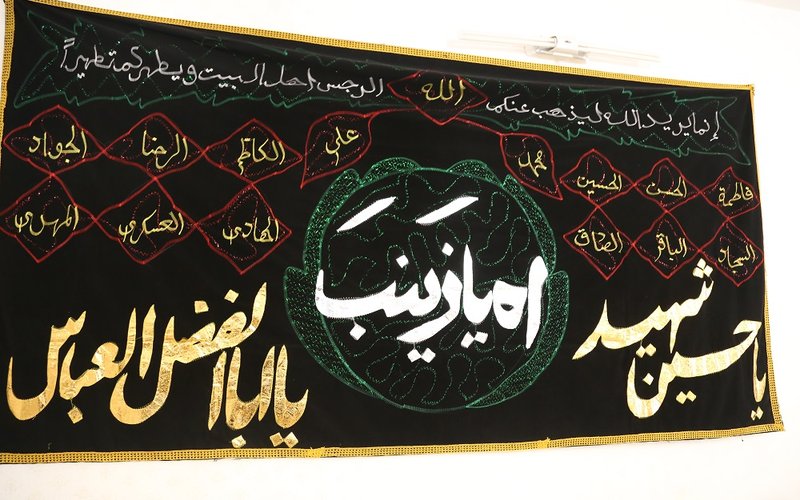 إنما يريد الله ليذهب عنكم الرجس اهل البيت ويطهركم تطهيراً
الله
محمد
علي
فاطمة الحسن الحسين
السجاد الباقر الصادق
الكاظم الرضا الجواد
الهادي العسكري المهدي
اه يا زينب
يا حسين شهيد
يا ابا الفضل العباس